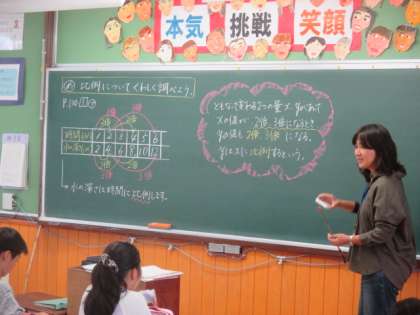 本気 挑戦 笑顔
比例についてくわしく調べよう。
時間(分) 1 2 3 4 5 6
2 4 6 8 10 12
2倍 3倍
→水の深さは時間に比例します。
ともなって変わる2つの量x、yがあって
xの値が2倍、3倍になるとき
yの値も2倍、3倍になる。
yはxに比例するという。